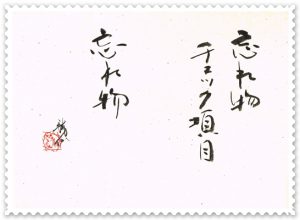 忘れ物
チェック項目
忘れ物